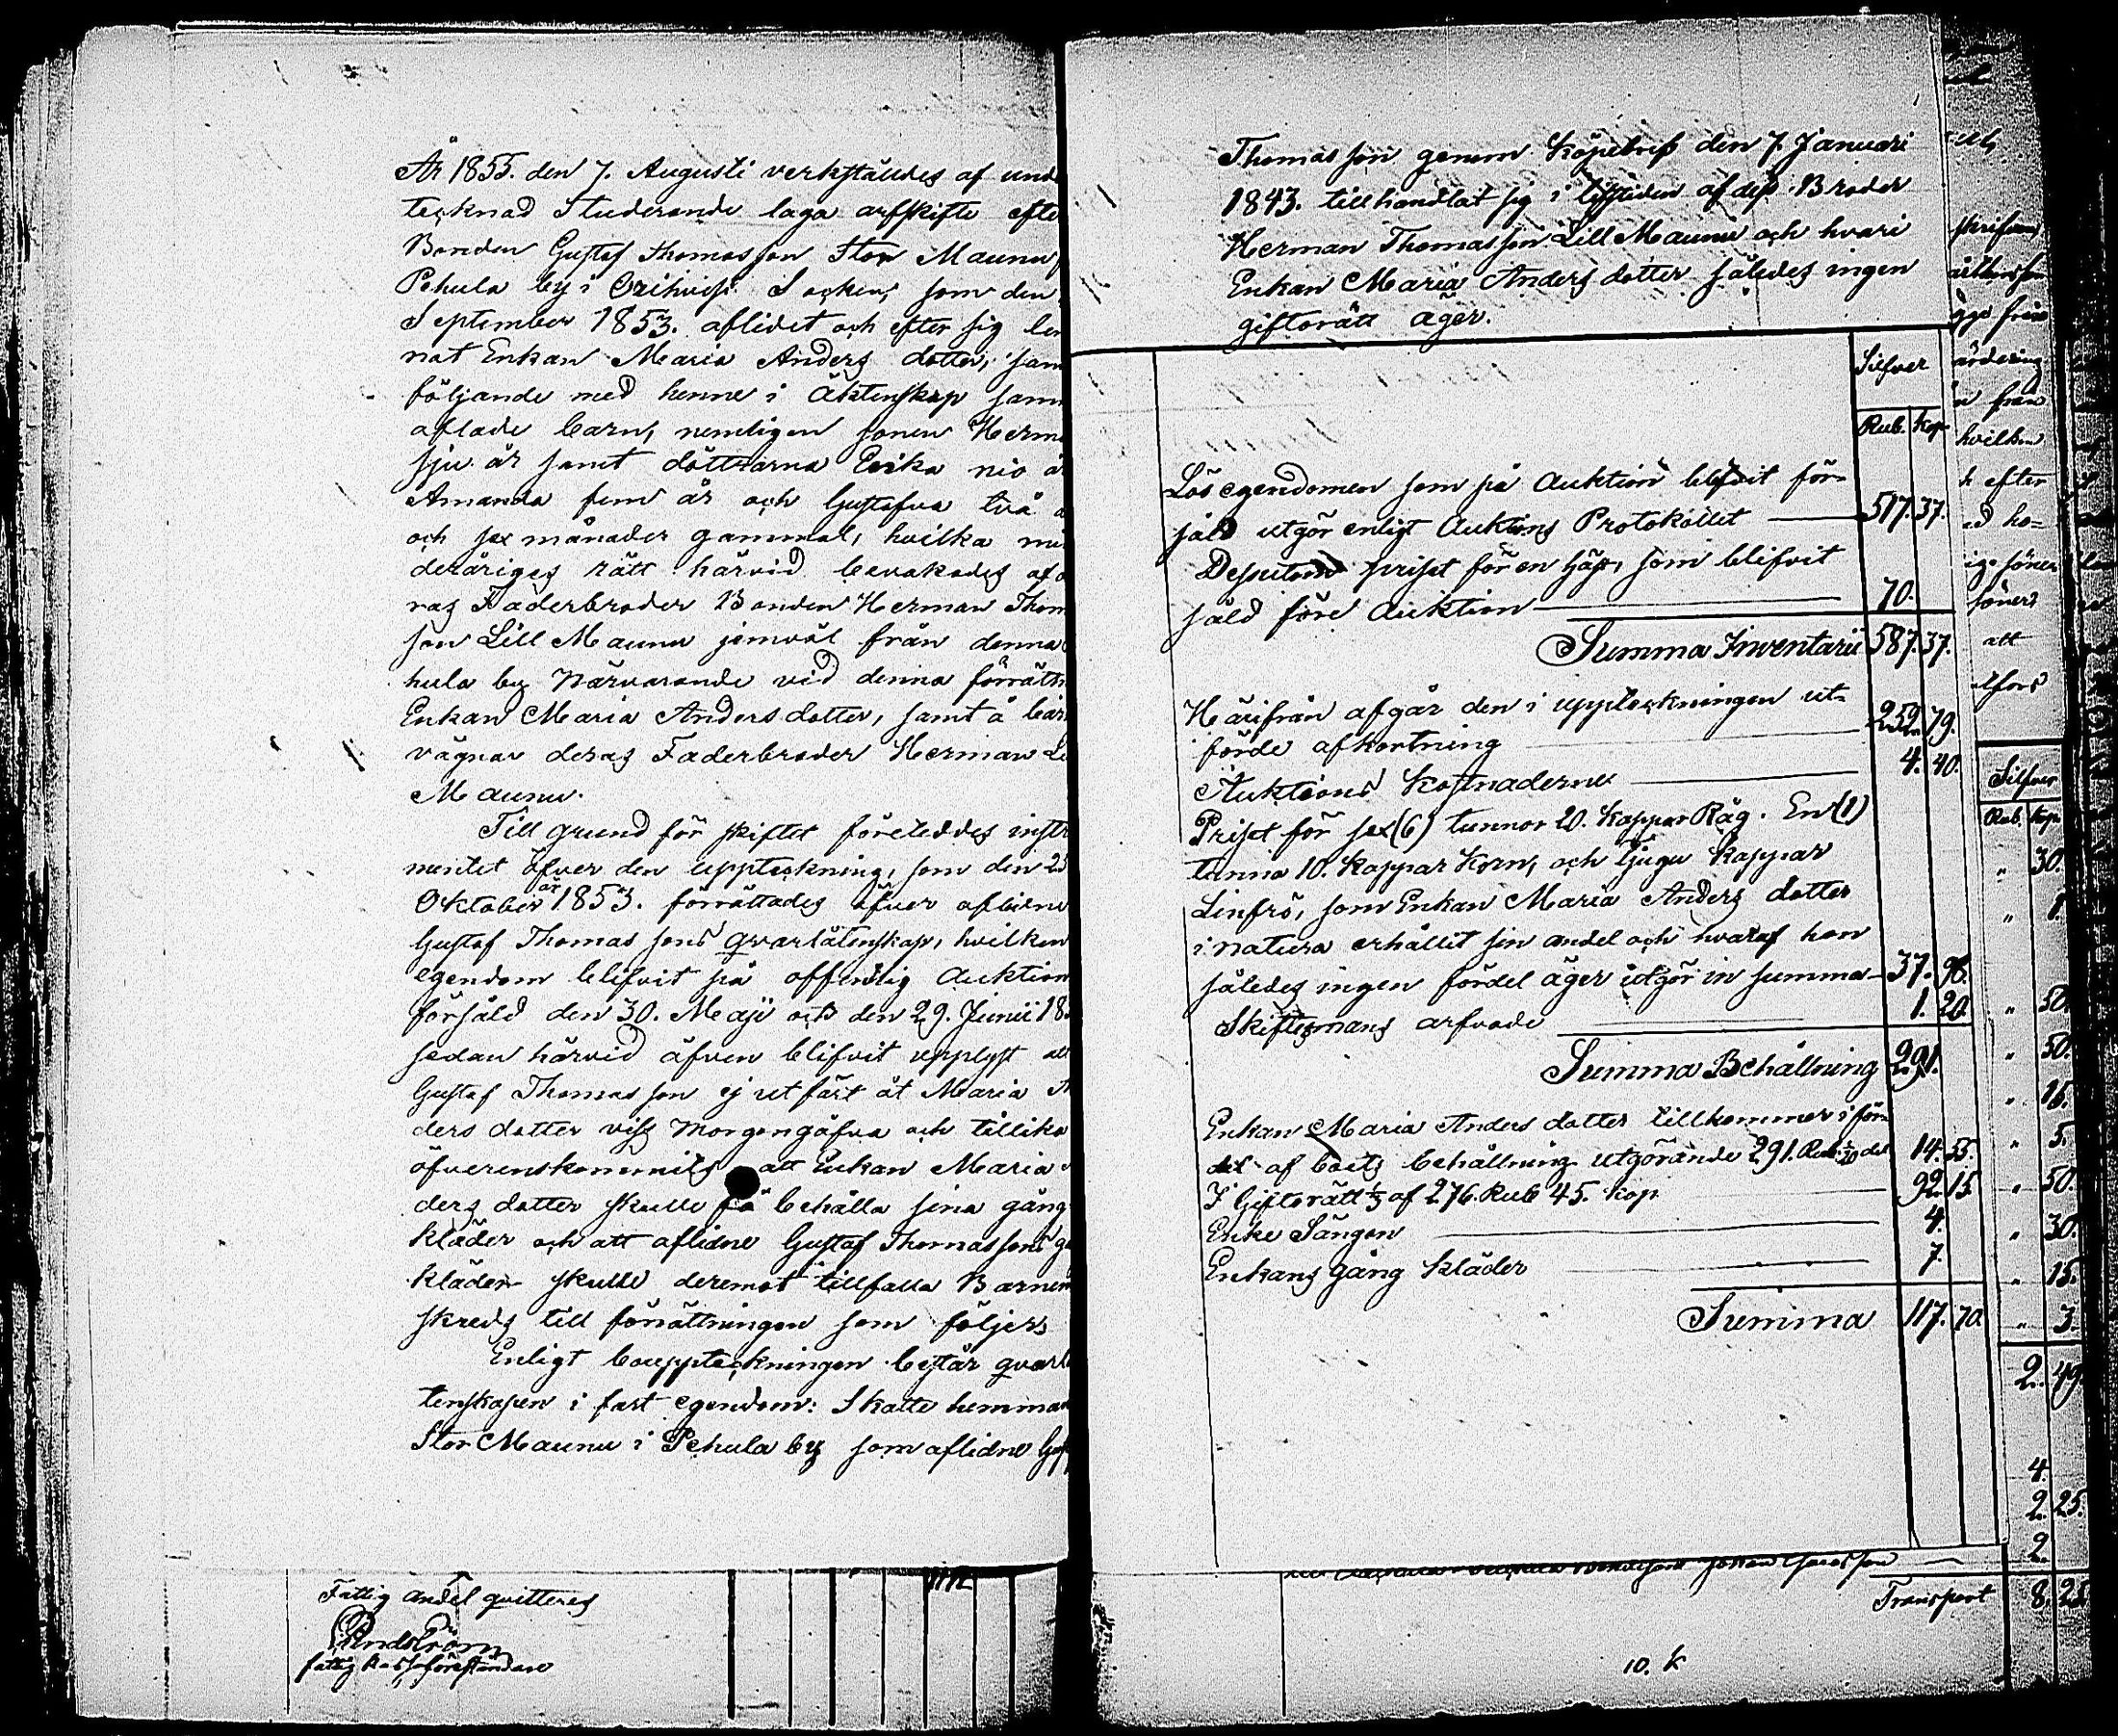 År 1855. den 7. Augusti verkställdes af unde
tecknad Studerande laga arfskifte efte
Bonden Gustaf Thomasson Stor Maunu
Pehula by i Orihvesi Socken, som den
September 1853. aflidit och efter sig lem
nat Enkan Maria Anders dotter, sam
följande med henne i äktenskap sam
aflade barn, nemligen sonen Herm
sju år samt döttrarna Erika nio å
Amanda fem år och Gustafva två å
och sex månader gammal, hvilka mi
deråriges rätt härvid bevakades af d
ras Faderbroder Bonden Herman Thom
son Lill Maunu jemväl från denna
hula by Närvarande vid denna förrättn
Enkan Maria Anders dotter, samt å bar
vägnar deras Faderbroder Herman Li
Maunu.
Till grund för skiftet föreleddes instr
mentet öfver den uppteckning, som den 25
Oktober år 1853. förrättades öfver aflidne
Gustaf Thomas sons qvarlåtenskap, hvilken
egendom blifvit på offentlig auktion
försåld den 30. Maji och den 29. Junii 18
sedan härvid äfven blifvit upplyst att
Gustaf Thomas son ej utfäst åt Maria An
ders dotter viss Morgongåfva och tillika
öfverenskommits att Enkan Maria
ders dotter skulle få behålla sina gång
kläder och att aflidne Gustaf Thomassons gå
kläder skulle deremot tillfalla Barnen
skreds till förrättningen som följer:
Enligt bouppteckningen består qvarl
tenskapen i fast egendom: Skatte hemman
Stor Maunu i Pehula by som aflidne Gust
Fattig andel qvitteras
Lindström
fattig kasse föreståndare
Thomas son genom Köpebref den 7. Januari
1843. tillhandlat sig i lifstiden af dess Broder
Herman Thomas son Lill Maunu och hvari
Enkan Maria Anders dotter således ingen
giftorätt äger.
Silfver
Rub. Kop
Lös egendomen som på Auktion blifvit för-
såld utgör enligt Auktions Protokollet 517. 37.
Dessutom priset för en häst, som blifvit
såld före Auktion 70.
Summa Inventarii 587. 37.
Härifrån afgår den i uppteckningen ut-
förde afkortning 252. 79.
Auktions Kostnaderne 4. 40.
Priset för sex (6) tunnor 20. Kappar Råg. En (1)
tunna 10. Kappar Korn, och tjugu Kappar
Linfrö, som Enkan Maria Anders dotter
i natura erhållit sin andel och hvaraf hon
således ingen fördel äger utgör in summa 37. 98.
Skiftesmans arfvode 1. 20.
Summa Behållning 291.
Enkan Maria Anders dotter tillkommer i för-
del af boets behållning utgörande 291. Rub. 1/20 del 14. 55.
I Giftorätt 1/3 af 276. Rub 45. Kop. 92. 15
Enke Sängen 4.
Enkans gång kläder 7.
Summa 117. 70
Transport 8. 25.
10. k
skrifven
ärdering
hvilken
h efter
ed ho=
söner
att
Silfver
Rub. Kop
" 30.
" 1.
" 50.
" 50.
" 15.
" 5.
" 50.
" 30.
" 15.
" 3.
2. 49.
4.
2. 25.
2.